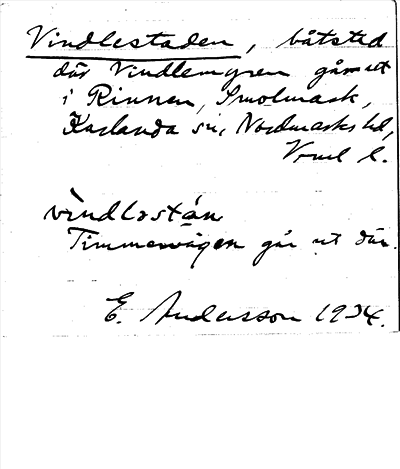 Vindlestaden, båtsted
där Vindlemyren går ut
i Rinnen, Smolmark,
Karlanda sn, Nordmarks hd,
Vrml l.
vìndləstán
Timmervägen går ut där.
E. Andersson 1934.